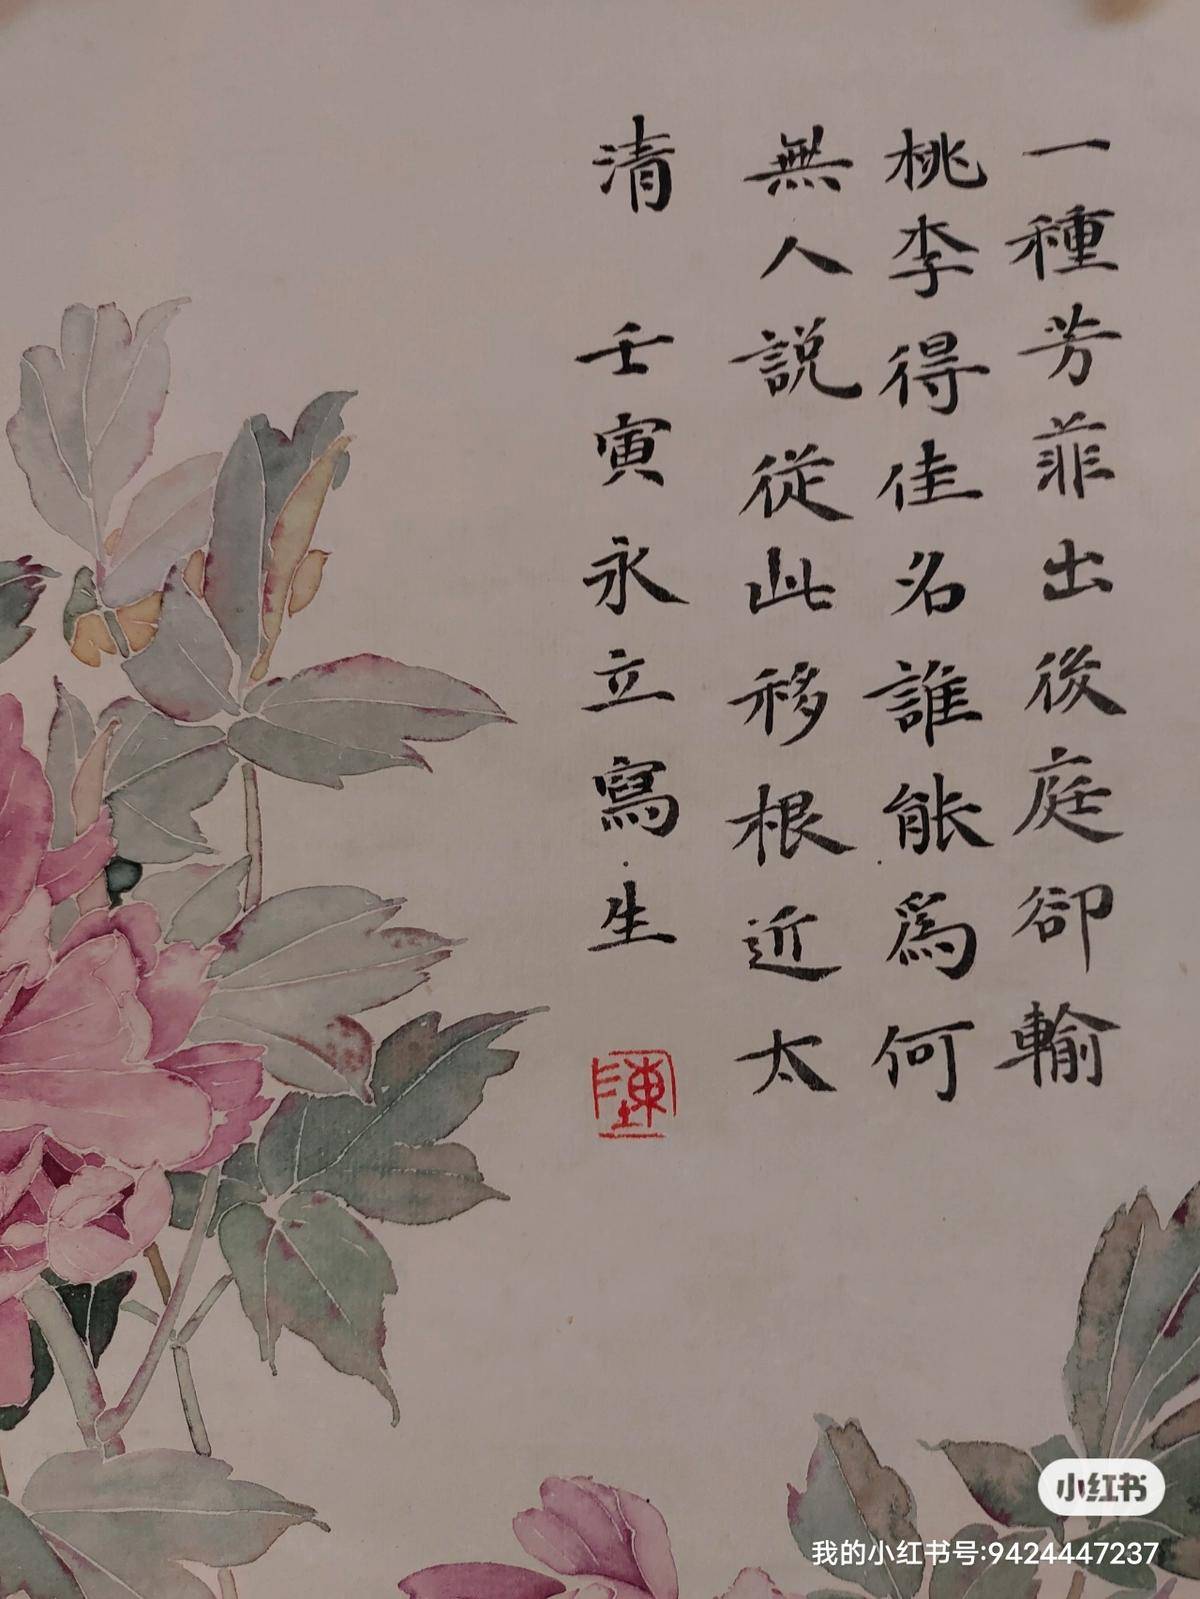 一種芳菲出後庭卻輸
桃李得佳名誰能爲何
無人説從此移根近太
清 壬寅永立寫生
陳
小红书
我的小红书号:9424447237